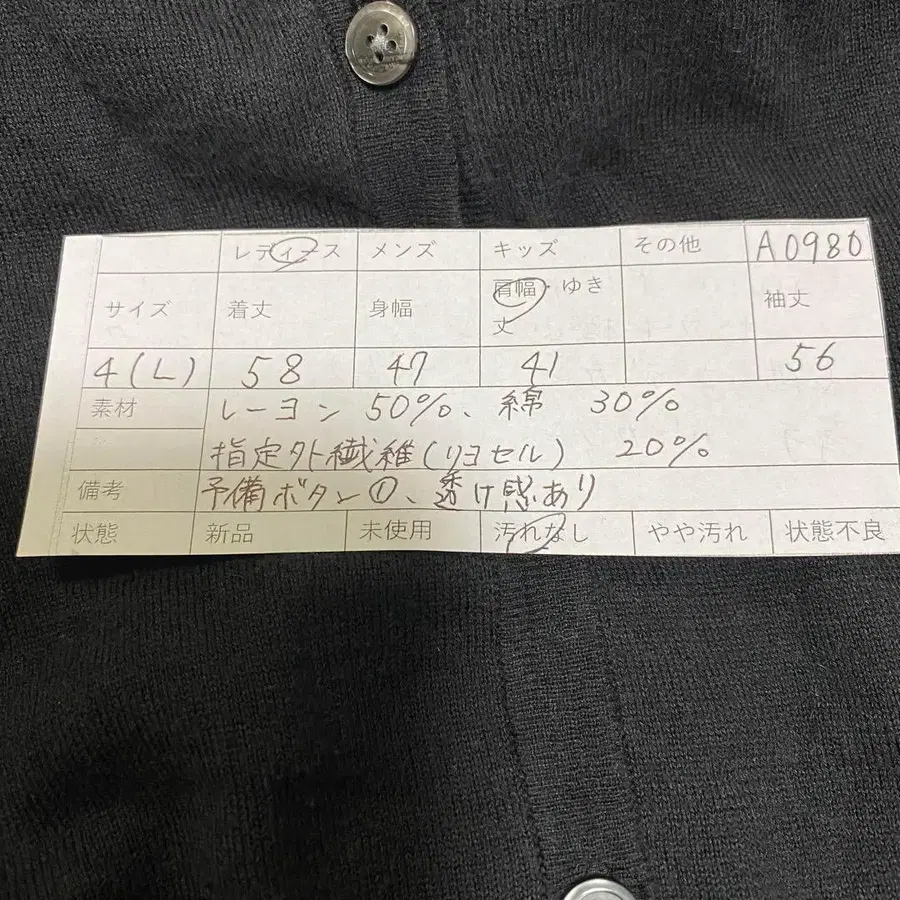 レディース メンズ キッズ その他 A0980
サイズ 着丈 身幅 肩幅・ゆき丈 袖丈
4(L) 58 47 41 56
素材 レーヨン 50%、綿 30%
指定外繊維(リヨセル) 20%
備考 予備ボタン①、透け感あり
状態 新品 未使用 汚れなし やや汚れ 状態不良